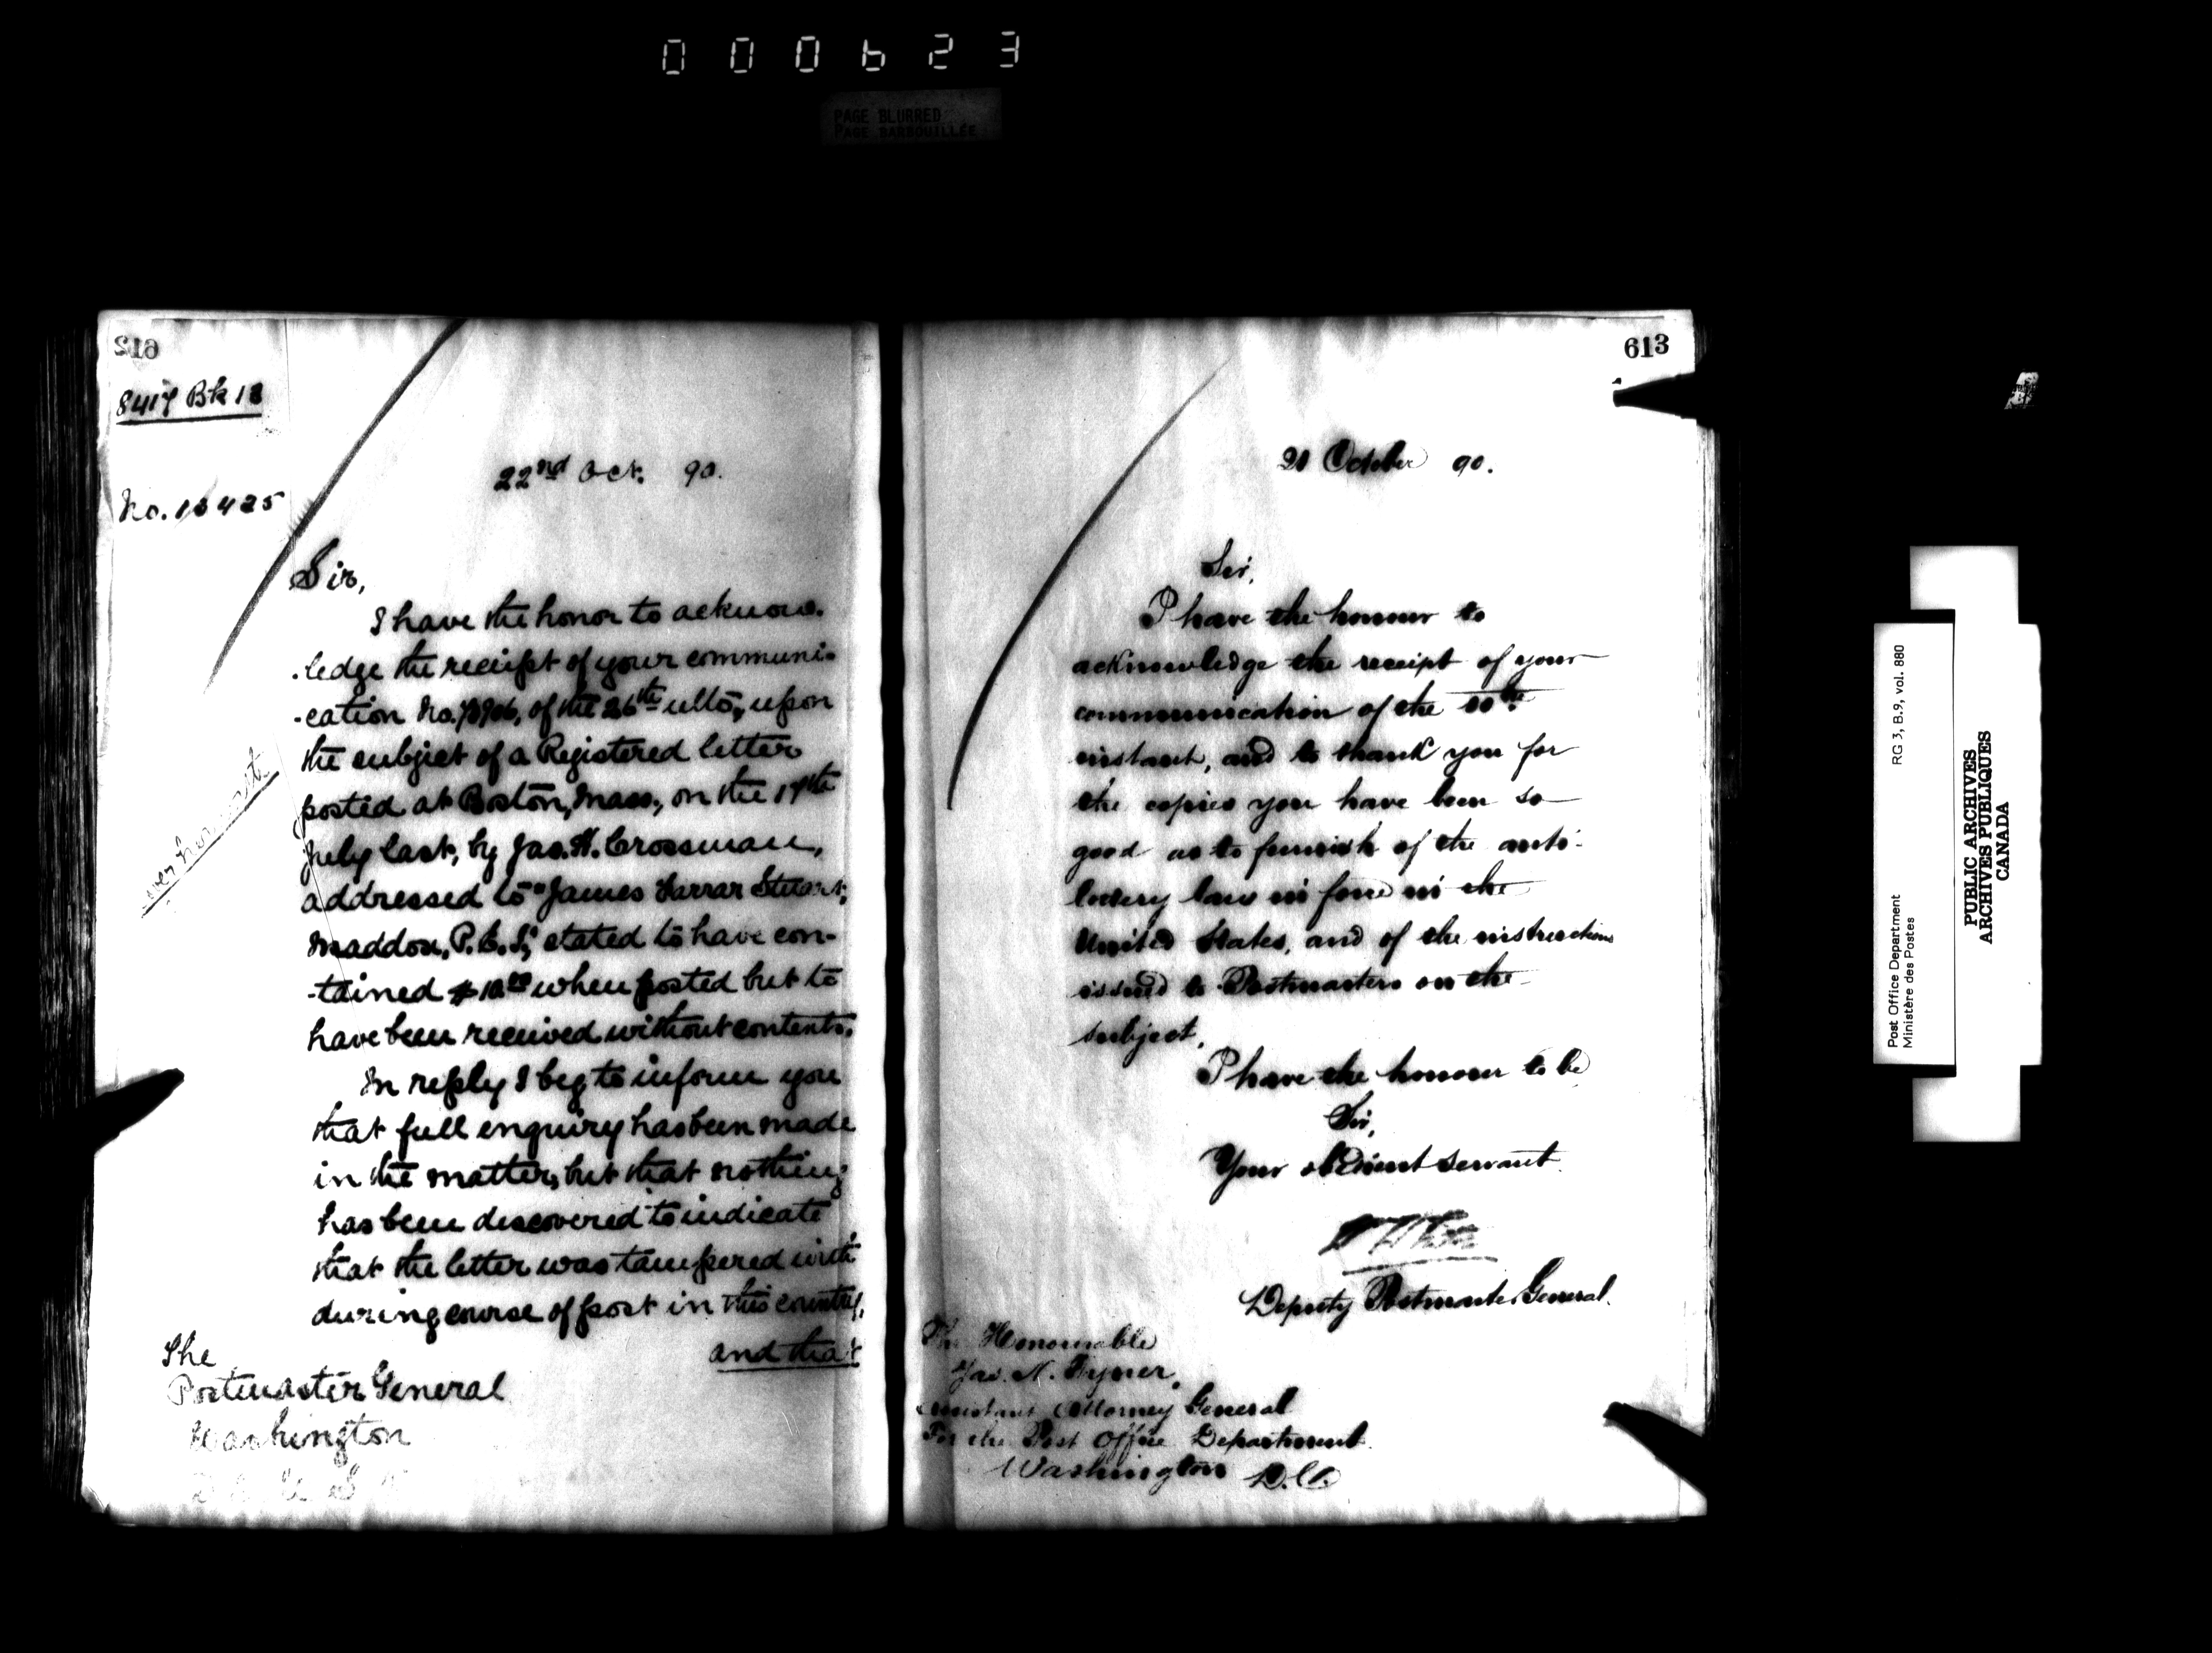 000623
PAGE BLURRED
PAGE BARBOUILLÉE
612
8417 Bk 18
No. 13425
22nd Oct. 90.
Sir,
I have the honor to acknow-
-ledge the receipt of your communi-
-cation No. of the 26th ulto, upon
the subject of a Registered letter
posted at Boston, Mass., on the 17th
July last, by Jas. H. Crossman,
addressed to "James Farrar Stuart,
Maddon, P.E.I," stated to have con-
-tained $10.00 when posted but to
have been received without contents.
In reply I beg to inform you
that full enquiry has been made
in the matter, but that nothing
has been discovered to indicate
that the letter was tampered with
during course of post in this country,
and that
The
Postmaster General
Washington
over
613
21 October 90.
Sir,
I have the honour to
acknowledge the receipt of your
communication of the 10th
instant, and to thank you for
the copies you have been so
good as to furnish of the anti-
lottery law in force in the
United States, and of the instructions
issued to Postmasters on the
subject.
I have the honour to be
Sir,
Your obedient servant
Deputy Postmaster General.
The Honourable
Jas. N. Tyner,
Assistant Attorney General
For the Post Office Department
Washington D.C.
Post Office Department
Ministère des Postes
RG 3, B.9, vol. 880
PUBLIC ARCHIVES
ARCHIVES PUBLIQUES
CANADA